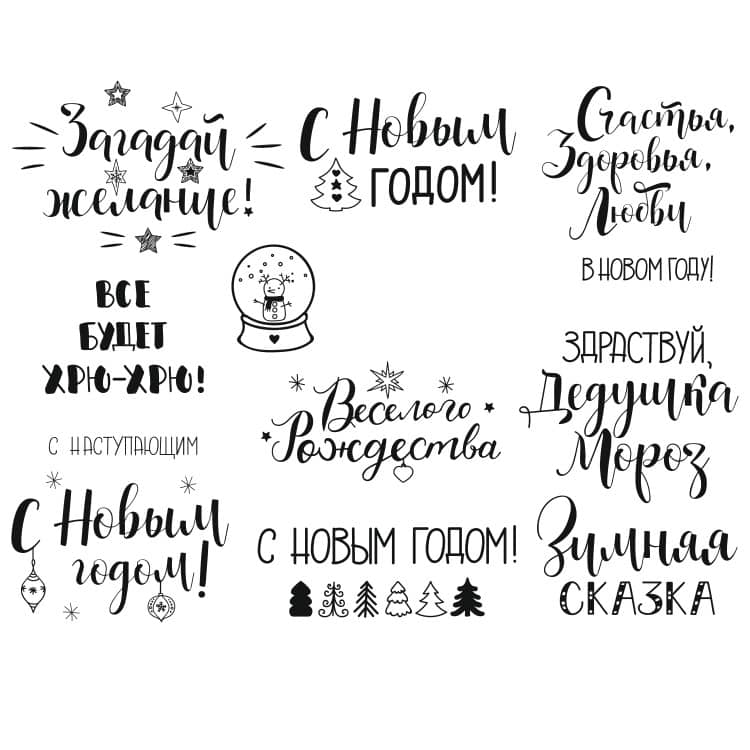 Загадай
желание!
С Новым
ГОДОМ!
Счастья,
Здоровья,
Любви
В НОВОМ ГОДУ!
ВСЕ
БУДЕТ
ХРЮ-ХРЮ!
Веселого
Рождества
ЗДРАСТВУЙ,
Дедушка
Мороз
С НАСТУПАЮЩИМ
С Новым
годом!
С НОВЫМ ГОДОМ!
Зимная
СКАЗКА